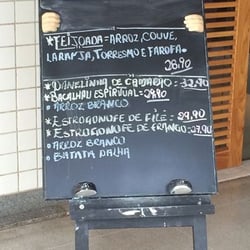 *FEIJOADA=ARROZ, COUVE,
LARANJA, TORRESMO E FAROFA.
28,90
*PANELINHA DE CAMARÃO=32,90
*BACALHAU ESPIRITUAL=29,90
• ARROZ BRANCO
*ESTROGONOFE DE FILÉ=29,90
*ESTROGONOFE DE FRANGO=27,90
• ARROZ BRANCO
• BATATA PALHA